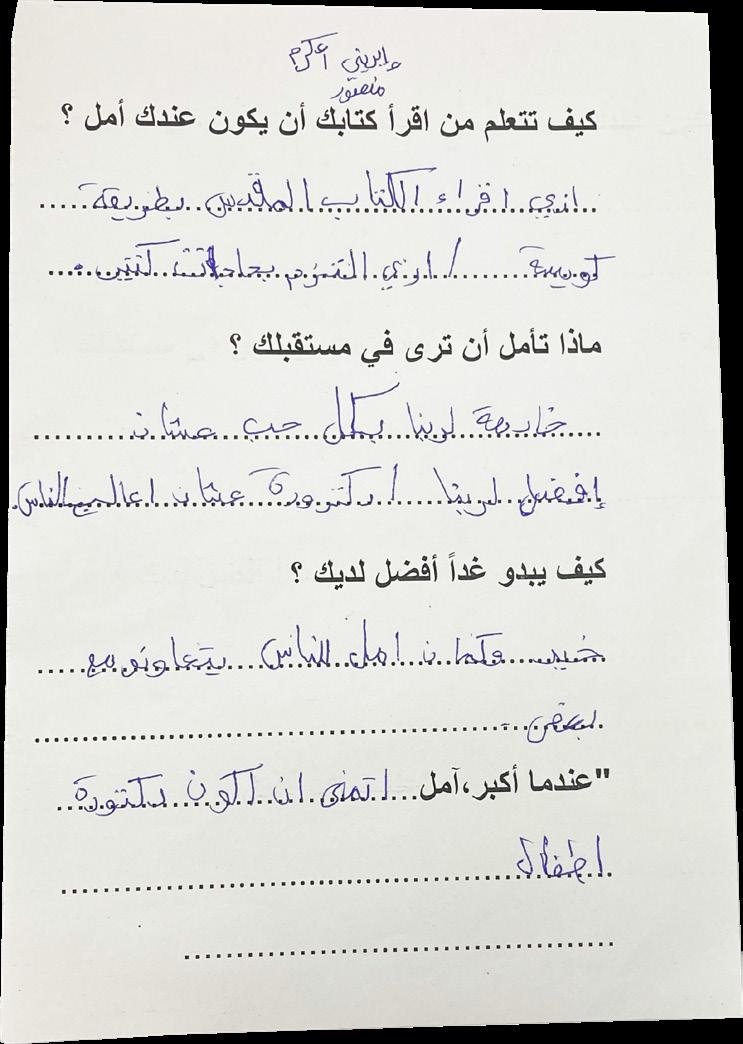 إيريني أكرم
منصور
كيف تتعلم من اقرأ كتابك أن يكون عندك أمل ؟
ازي اقراء الكتاب المقدس بطريقة
كويسة / ازي التزم بحاجات كتير.
ماذا تأمل أن ترى في مستقبلك ؟
خادمة لربنا بكل حب عشان
إفضل لربنا / دكتورة عشان اعالج الناس.
كيف يبدو غداً أفضل لديك ؟
وكمان امل للناس يتعاونو مع
بعض.
"عندما أكبر،آمل اتمنى ان اكون دكتورة
اطفال